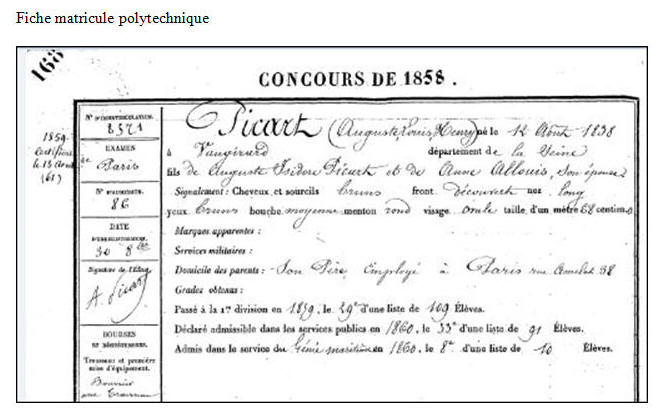 Fiche matricule polytechnique
168
CONCOURS DE 1858.
1859
le 13
(61)
N° D'IMMATRICULATION.
8521
EXAMEN
de Paris
N°
86
DATE
30 8bre
Signature de l'Élève.
A. Picart
BOURSES
Trousseau et première
mise d'équipement.
Boursier
avec Trousseau
Picart (Auguste Louis Henry) né le 12 Août 1838
à Vaugirard département de la Seine
fils de Auguste Isidore Picart et de Anne Allouis, son épouse
Signalement: Cheveux et sourcils bruns front découvert nez long
yeux bruns bouche moyenne menton rond visage ovale taille d'un mètre 68 centim
Marques apparentes :
Services militaires :
Domicile des parents : Son Père, Employé à Paris rue Amelot 38
Grades obtenus :
Passé à la 1re division en 1859, le 29e d'une liste de 109 Élèves.
Déclaré admissible dans les services publics en 1860, le 33e d'une liste de 91 Élèves.
Admis dans le service du Génie maritime en 1860, le 8e d'une liste de 10 Élèves.